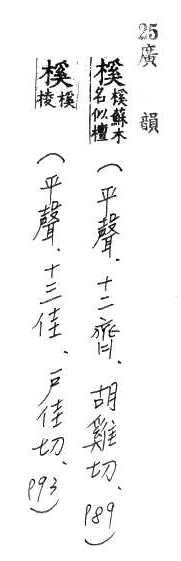 25廣韻
榽 榽蘇木名似檀（平聲、十二齊、胡雞切、P89）
榽 榽棱（平聲、十三佳、戶佳切、P93）